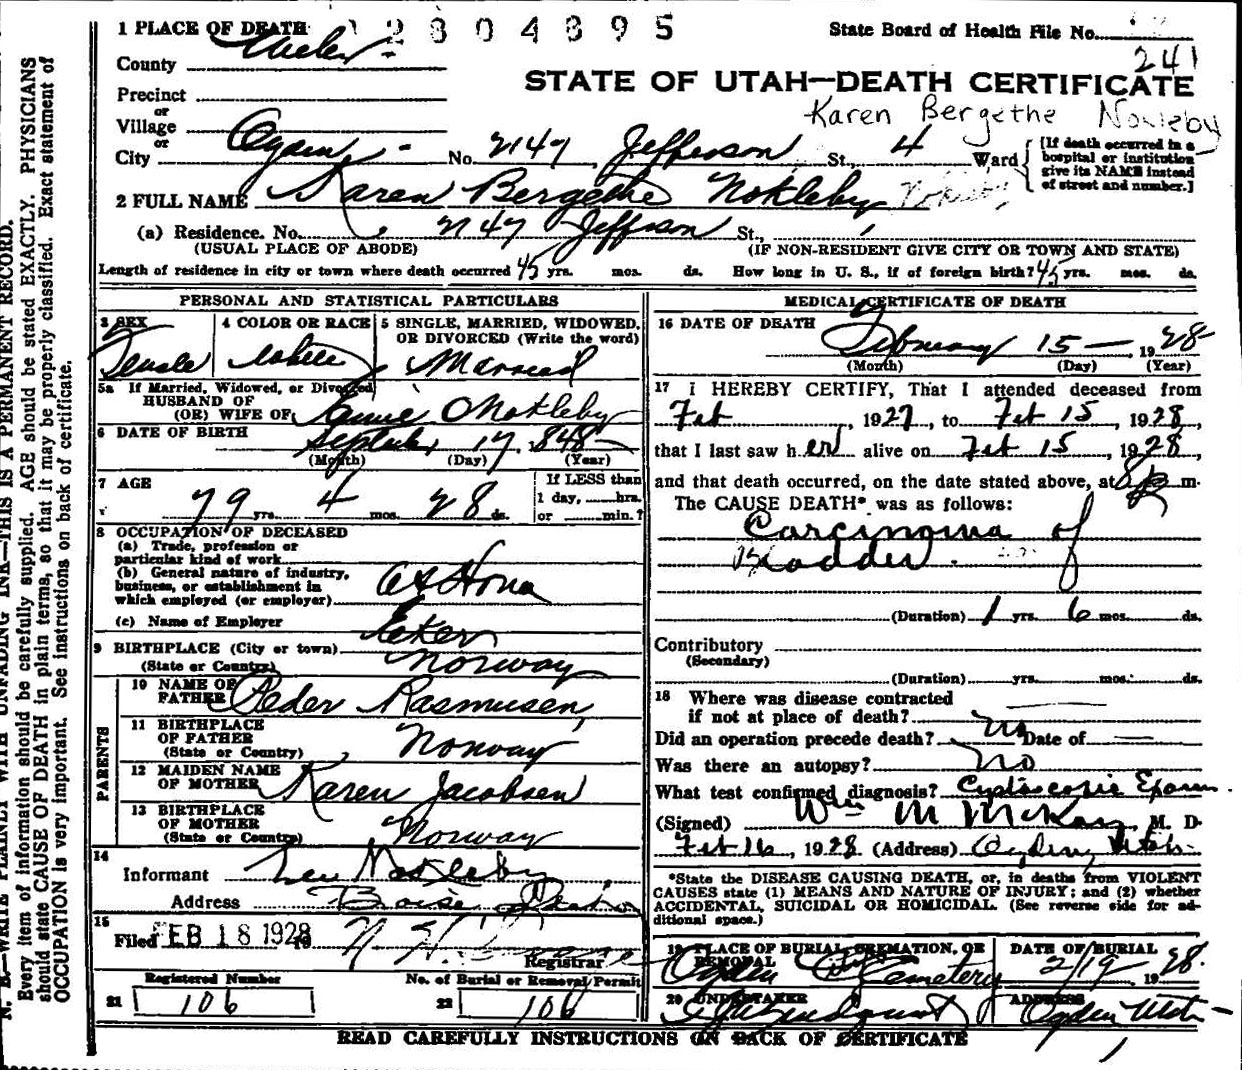 1 PLACE OF DEATH 2804895 State Board of Health File No.
241
County Weber
STATE OF UTAH—DEATH CERTIFICATE
Precinct
Karen Bergethe Nokleby
or
Village
or
City Ogden No. 2147 Jefferson St., 4 Ward
[If death occurred in a hospital or institution give its NAME instead of street and number.]
2 FULL NAME Karen Bergethe Nokleby
(a) Residence. No. 2147 Jefferson St.,
(USUAL PLACE OF ABODE) (IF NON-RESIDENT GIVE CITY OR TOWN AND STATE)
Length of residence in city or town where death occurred 45 yrs. mos. ds. How long in U. S., if of foreign birth? 45 yrs. mos. ds.
PERSONAL AND STATISTICAL PARTICULARS
3 SEX Female
4 COLOR OR RACE White
5 SINGLE, MARRIED, WIDOWED, OR DIVORCED (Write the word) Married
5a If Married, Widowed, or Divorced
HUSBAND OF
(OR) WIFE OF Nokleby
6 DATE OF BIRTH September 17, 1848
(Month) (Day) (Year)
7 AGE 79 yrs. 4 mos. 28 ds.
If LESS than
1 day, hrs.
or min.?
8 OCCUPATION OF DECEASED
(a) Trade, profession or
particular kind of work
(b) General nature of industry,
business, or establishment in
which employed (or employer) At Home
(c) Name of Employer
9 BIRTHPLACE (City or town) Eker
(State or Country) Norway
PARENTS
10 NAME OF
FATHER Peder Rasmusen
11 BIRTHPLACE
OF FATHER
(State or Country) Norway
12 MAIDEN NAME
OF MOTHER Karen Jacobsen
13 BIRTHPLACE
OF MOTHER
(State or Country) Norway
14
Informant Nokleby
Address Boise Idaho
15
Filed FEB 18 1928 19
Registrar
Registered Number No. of Burial or Removal Permit
21 106 22 106
MEDICAL CERTIFICATE OF DEATH
16 DATE OF DEATH
February 15 — , 1928
(Month) (Day) (Year)
17 I HEREBY CERTIFY, That I attended deceased from
Feb , 1927, to Feb 15, 1928,
that I last saw her alive on Feb 15, 1928,
and that death occurred, on the date stated above, at 8 p m.
The CAUSE DEATH* was as follows:
Carcinoma of
Bladder
(Duration) 1 yrs. 6 mos. ds.
Contributory
(Secondary)
(Duration) yrs. mos. ds.
18 Where was disease contracted
if not at place of death?
Did an operation precede death? No Date of —
Was there an autopsy? No
What test confirmed diagnosis? Cystoscopic Exam
(Signed) Wm M McKay, M. D.
Feb 16, 1928 (Address) Ogden, Utah
*State the DISEASE CAUSING DEATH, or, in deaths from VIOLENT
CAUSES state (1) MEANS AND NATURE OF INJURY; and (2) whether
ACCIDENTAL, SUICIDAL OR HOMICIDAL. (See reverse side for ad-
ditional space.)
19 PLACE OF BURIAL, CREMATION, OR
REMOVAL
Ogden City Cemetery
DATE OF BURIAL
2/19, 1928
20 UNDERTAKER
ADDRESS
Ogden Utah
READ CAREFULLY INSTRUCTIONS ON BACK OF CERTIFICATE
N. B.—WRITE PLAINLY WITH UNFADING INK—THIS IS A PERMANENT RECORD.
Every item of information should be carefully supplied. AGE should be stated EXACTLY. PHYSICIANS
should state CAUSE OF DEATH in plain terms, so that it may be properly classified. Exact statement of
OCCUPATION is very important. See instructions on back of certificate.